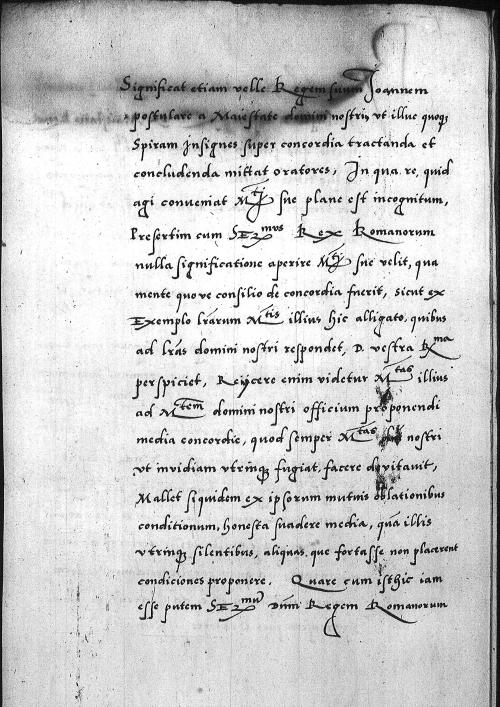 Significat etiam velle Regem suum Joannem
postulare a Maiestate domini nostri, vt illuc quoq;
Spiram Insignes super concordia tractanda et
concludenda mittat oratores, In qua re, quid
agi conueniat M^ti sue plane est incognitum,
Presertim cum SER^mus Rex Romanorum
nulla significatione aperire M^ti sue velit, qua
mente quo ve consilio de concordia fuerit, sicut ex
Exemplo lrarum M^tis illius hic alligato, quibus
ad lras domini nostri respondet, D. vestra R^ma
perspiciet, Reijcere enim videtur M^tas illius
ad M^tem domini nostri officium proponendi
media concordie, quod semper M^tas nostri
vt inuidiam vtrinq; fugiat, facere deuitauit,
Mallet siquidem ex ipsorum mutuis oblationibus
conditionum, honesta suadere media, quã illis
vtrinq; silentibus, aliquas que fortasse non placerent
condiciones proponere. Quare cum isthic iam
esse putem SER^mu Dnm Regem Romanorum